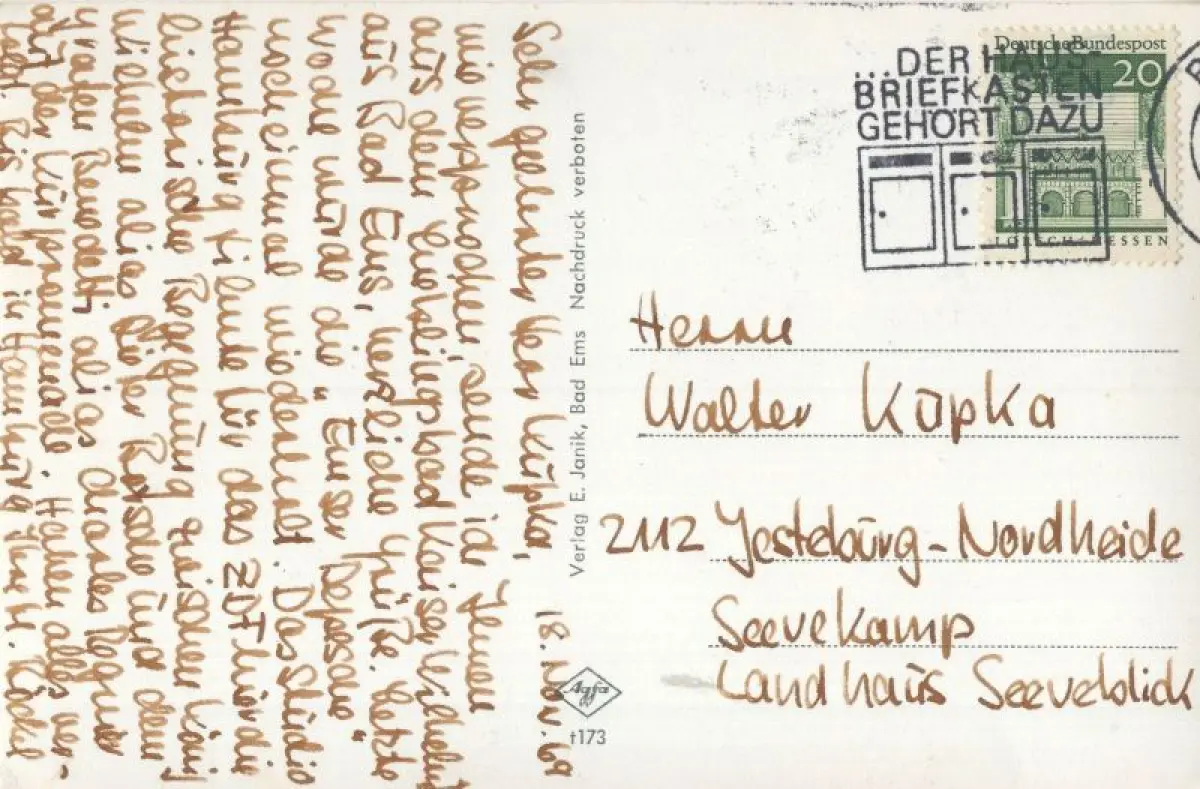 18. Nov. 69
Sehr geehrter Herr Kupka,
wie versprochen, sende ich Ihnen
aus dem Lieblingsbad Kaiser Wilhelms
aus Bad Ems, herzliche Grüße. Letzte
Woche wurde die „Emser Depesche“
noch einmal wiederholt. Das Studio
Hamburg filmte für das ZDF hier die
historische Begegnung zwischen König
Wilhelm alias Borsche und dem
Grafen Benedetti alias Charles Regnier
auf der Kurpromenade. Haben alles ver-
Bis bald in Hamburg Ihre H.
Verlag E. Janik, Bad Ems Nachdruck verboten
Agfa
t173
...DER HAUS-
BRIEFKASTEN
GEHÖRT DAZU
Deutsche Bundespost
20
LORSCH·HESSEN
Herrn
Walter Kupka
2112 Jesteburg-Nordheide
Seevekamp
Landhaus Seeveblick